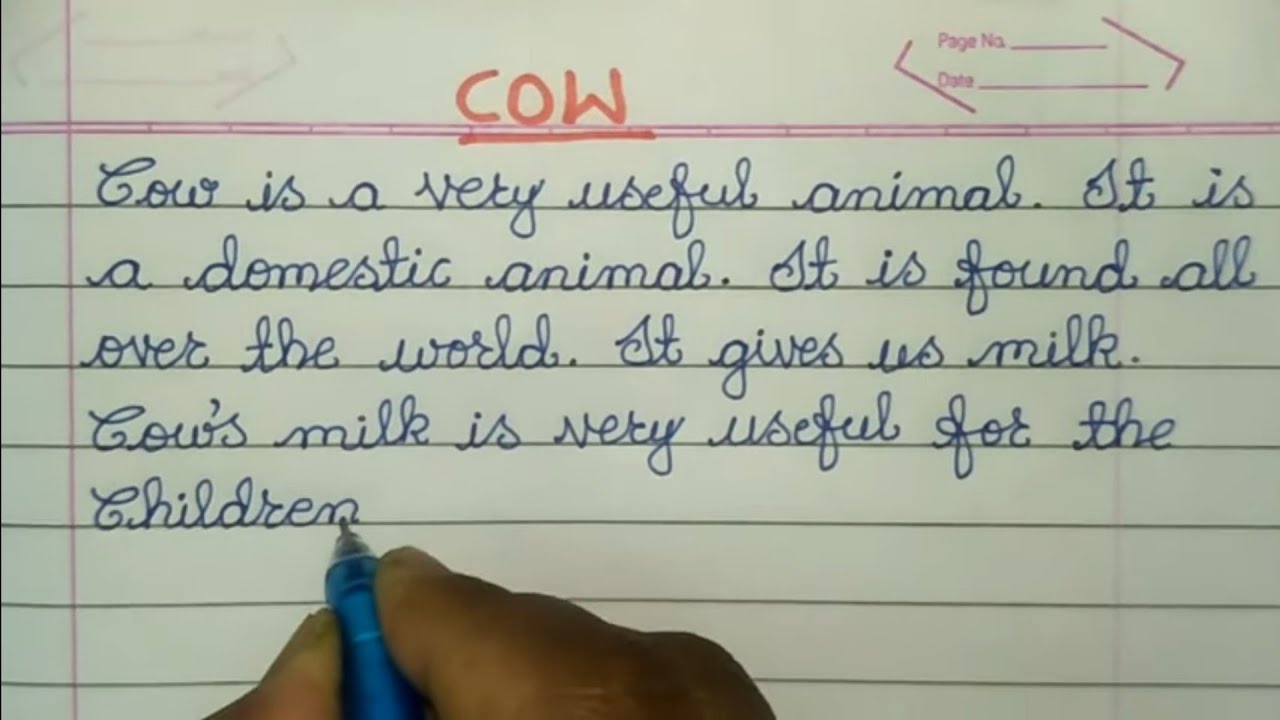 Page No.
Date
COW
Cow is a very useful animal. It is
a domestic animal. It is found all
over the world. It gives us milk.
Cow's milk is very useful for the
Children